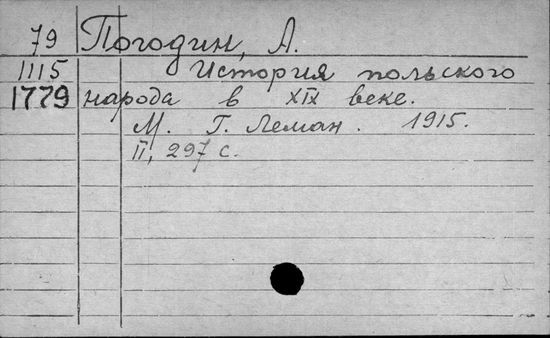 79 Погодин, А.
1115 История польского
1779 народа в XIX веке.
М. Г. Леман. 1915.
II, 297 с.